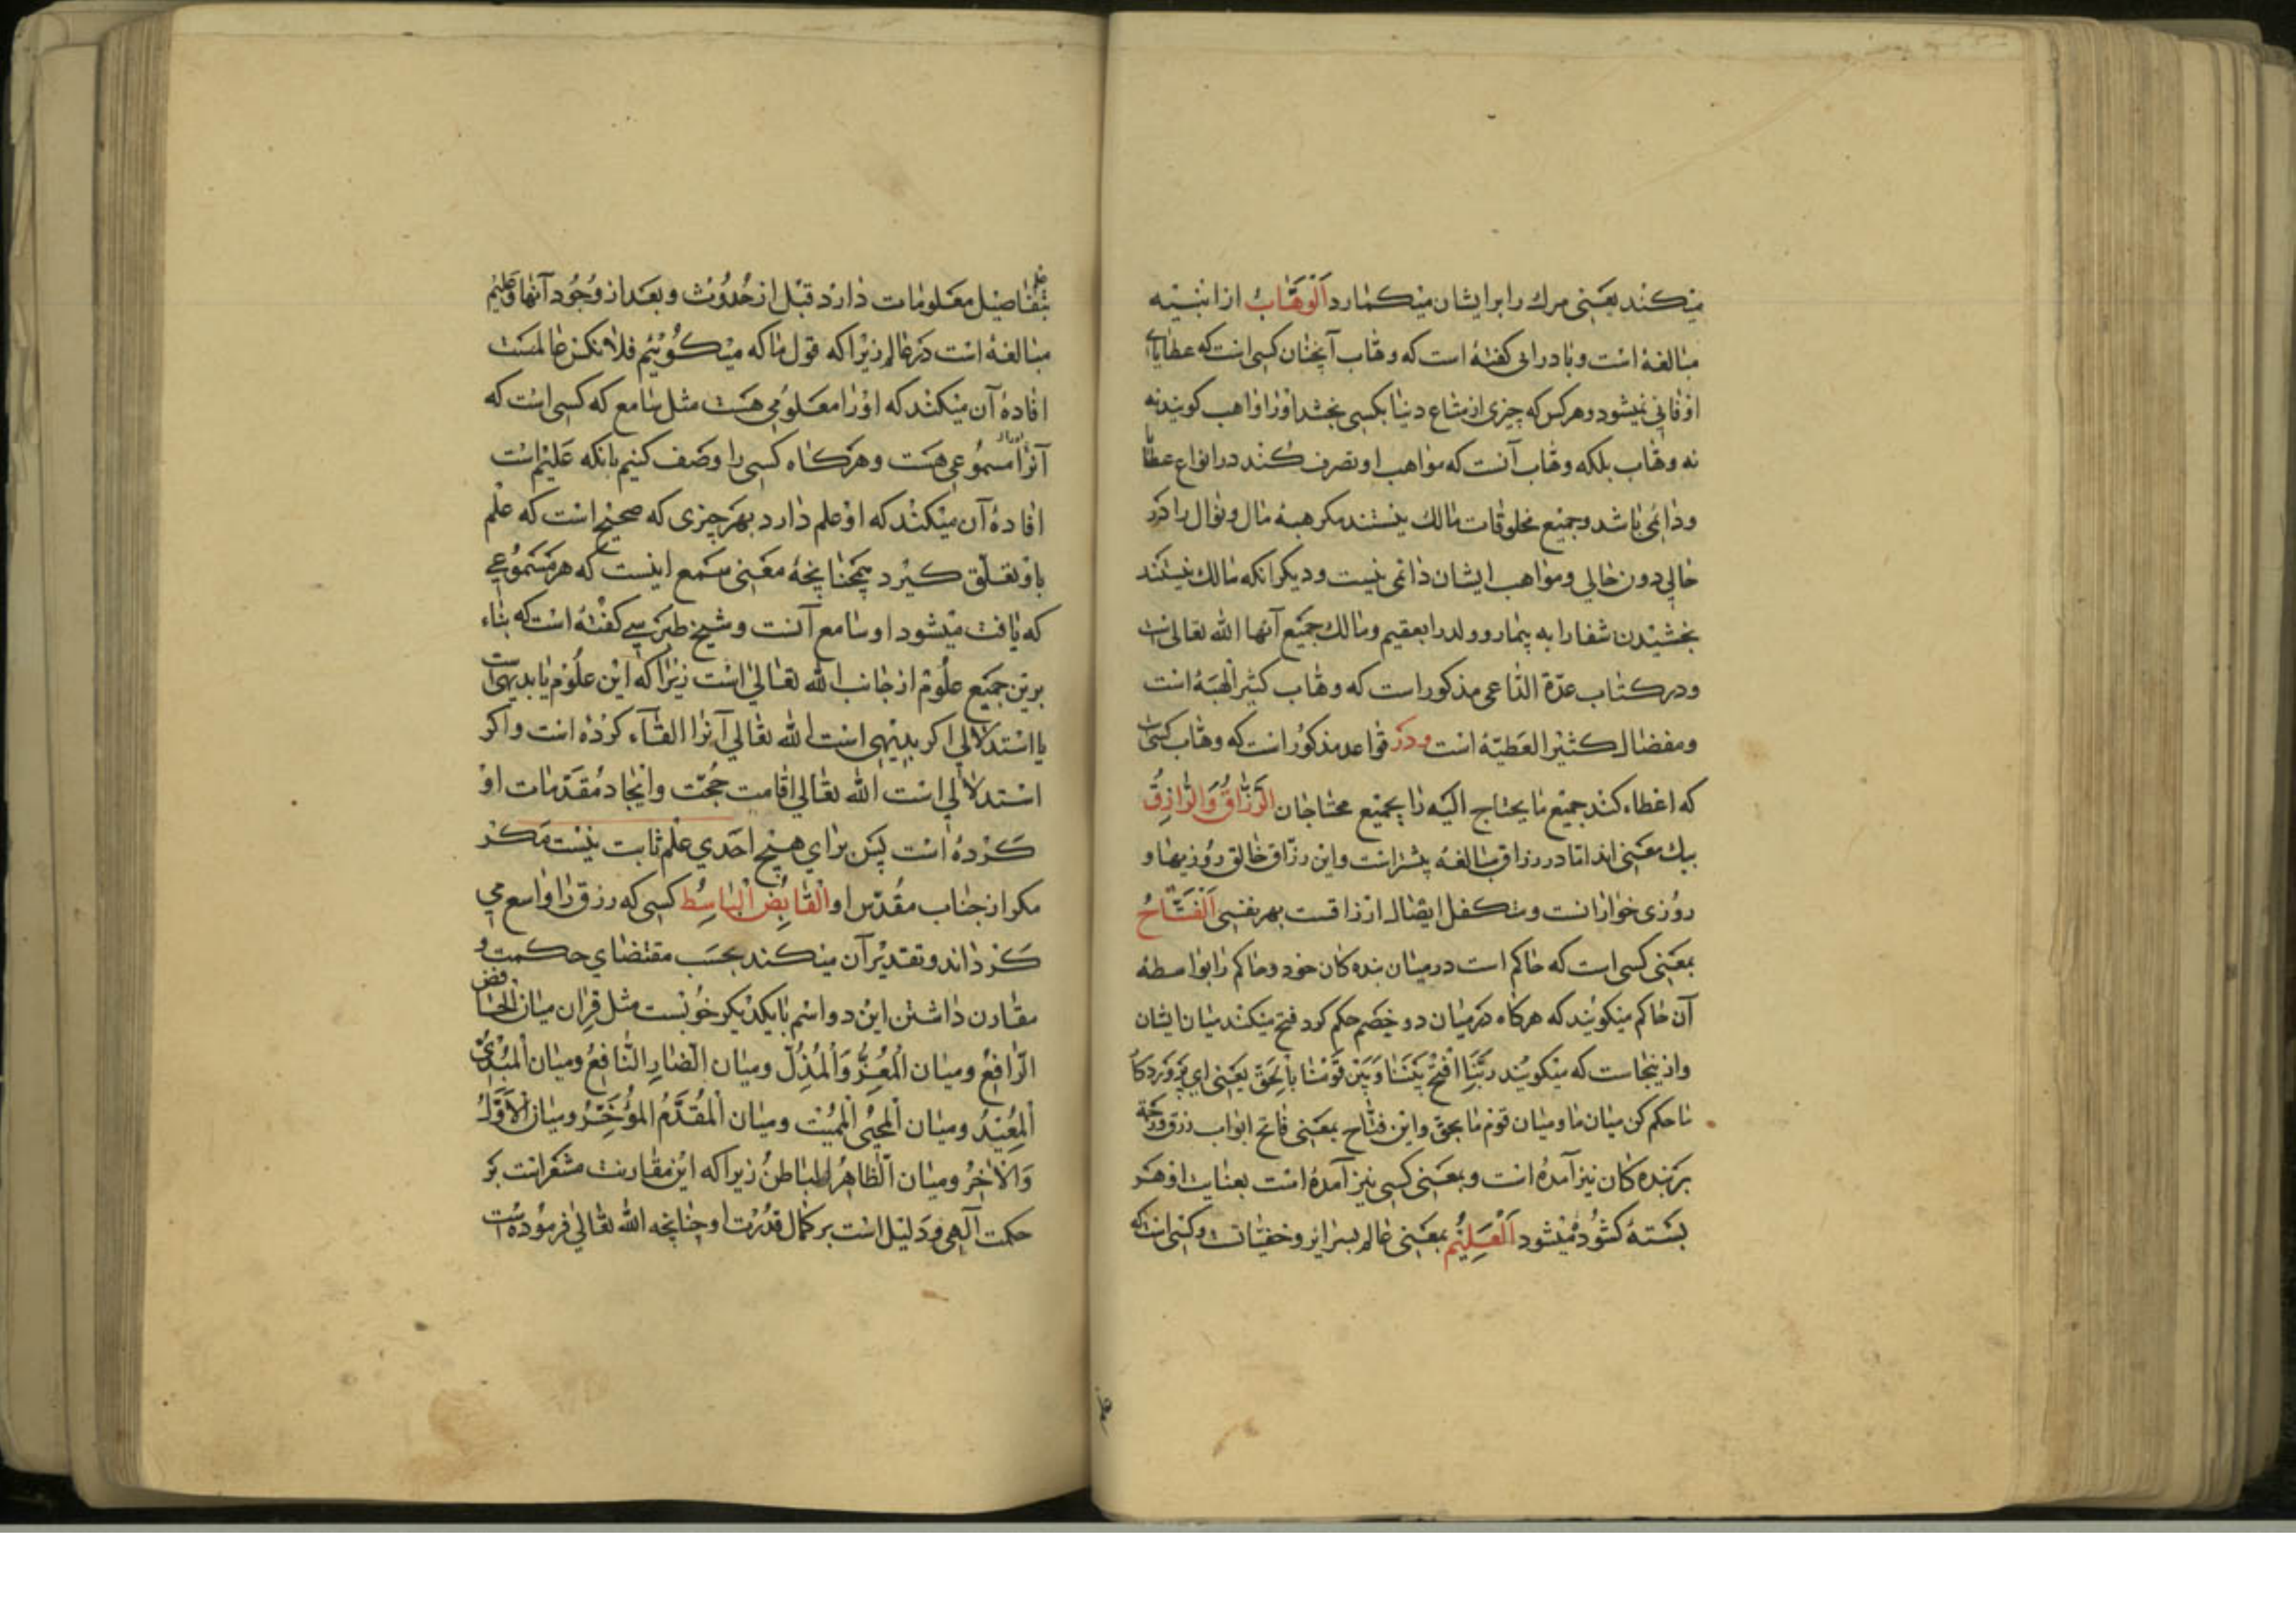 میکند یعنی مرک را بر ایشان میکمارد اَلْوَهّابُ از ابنیه
مبالغهٔ است و بادرائی کفته است که وهّاب آنچنان کسی است که عطایای
او فانی نمیشود و هرکس که چیزی از متاع دنیا بکسی بخشد او را واهب کویند نه
نه وهّاب بلکه وهّاب آنست که مواهب او تصرف کند در انواع عطایا
و دائمی باشد و جمیع مخلوقات مالک نیستند مکر هبهٔ مال و نوال را در
حالی دون حالی و مواهب ایشان دائمی نیست و دیکر انکه مالک نیستند
بخشیدن شفا را به بیمار و ولد را بعقیم و مالک جمیع آنها الله تعالی است
و در کتاب عدّة الدّاعی مذکور است که وهّاب کثیر الهبهٔ است
و مفضال کثیر العَطیّهٔ است و در قواعد مذکور است که وهّاب کسی است
که اعطاء کند جمیع ما یحتاج الیه را بجمیع محتاجان الرَّزّاقُ وَالرّازِقُ
بیک معنی اند امّا در رزاق مبالغهٔ بیشتر است و این رزّاق خالق روزیها و
روزی خواران است و متکفل ایصال ارزاقست بهر نفسی اَلْفَتّاحُ
بمعنی کسی است که حاکم است در میان بنده کان خود و حاکم را بواسطهٔ
آن حاکم میکویند که هرکاه در میان دو خصم حکم کرد فتح میکند میان ایشان
و از ینجاست که میکویند ربَّنَا افْتَحْ بَیْنَنا وَبَیْنَ قَوْمِنا بِالْحَقِّ یعنی ای پروردکار
ما حکم کن میان ما و میان قوم ما بحق و این فتّاح بمعنی فاتح ابواب رزق و رحمة
بر بنده کان نیز آمده است و بمعنی کسی نیز آمدهٔ است بعنایت او هر
بستهٔ کشوده میشود اَلْعَلیمُ بمعنی عالم بسرایر و خفیّات و کسی است که
بتفاصیل معلومات دارد قبل از حُدُوث و بعد از وُجُود آنها و علیم
مبالغهٔ است در عالم زیرا که قول ما که میکُوئیم فلانکس عالمست
افادهٔ آن میکند که او را معلومی هست مثل سامع که کسی است که
آنرا مسموعی هست و هرکاه کسی را وصف کنیم بانکه عَلیم است
افادهٔ آن میکند که او علم دارد بهر چیزی که صحیح است که علم
باو تعلّق کیرد همچنانچهٔ معنی سمع اینست که هر مَسمُوعی
که یافت میشود او سامع آنست و شیخ طبرسی کفته است که بناء
برین جمیع علوم از جانب الله تعالی است زیرا که این علوم یا بدیهی است
یا استدلالی اکر بدیهی است الله تعالی آنرا القآء کرده است و اکر
استدلالی است الله تعالی اقامت حجّت و ایجاد مقدّمات او
کردهٔ است پس برای هیچ احدی علم ثابت نیست مکر
مکر از جناب مقدّس او اَلْقابِضُ الْباسِط کسی که رزق را واسع می
کرداند و تقدیر آن میکند بحسب مقتضای حکمت و
مقارن داشتن این دو اسم بایکدیکر خوبست مثل قران میان الخافض
الرّافِعُ و میان الْمُعِزُّ وَالْمُذِلُّ و میان الضّارِ النّافِعُ و میان الْمُبْدِئُ
اَلْمُعیدُ و میان اَلْمُحْیی الْمُمیتُ و میان الْمُقَدِّمُ المؤَخِّرُ و میان الْاَوَّلُ
وَالْاٰخِرُ و میان الظّاهِرُ الباطنُ زیرا که این مقارنت مشعر است بر
حکمت آلهی و دلیل است بر کمال قدرت او چنانچه الله تعالی فرموده است